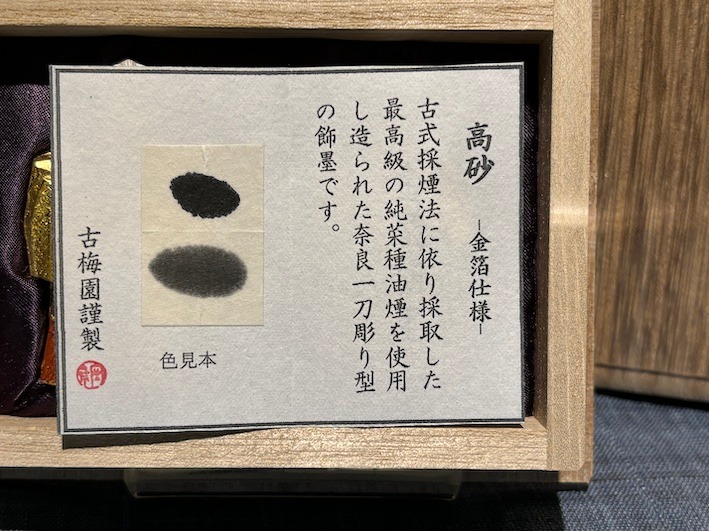 高砂 ―金箔仕様―
古式採煙法に依り採取した
最高級の純菜種油煙を使用
し造られた奈良一刀彫り型
の飾墨です。
色見本
古梅園謹製